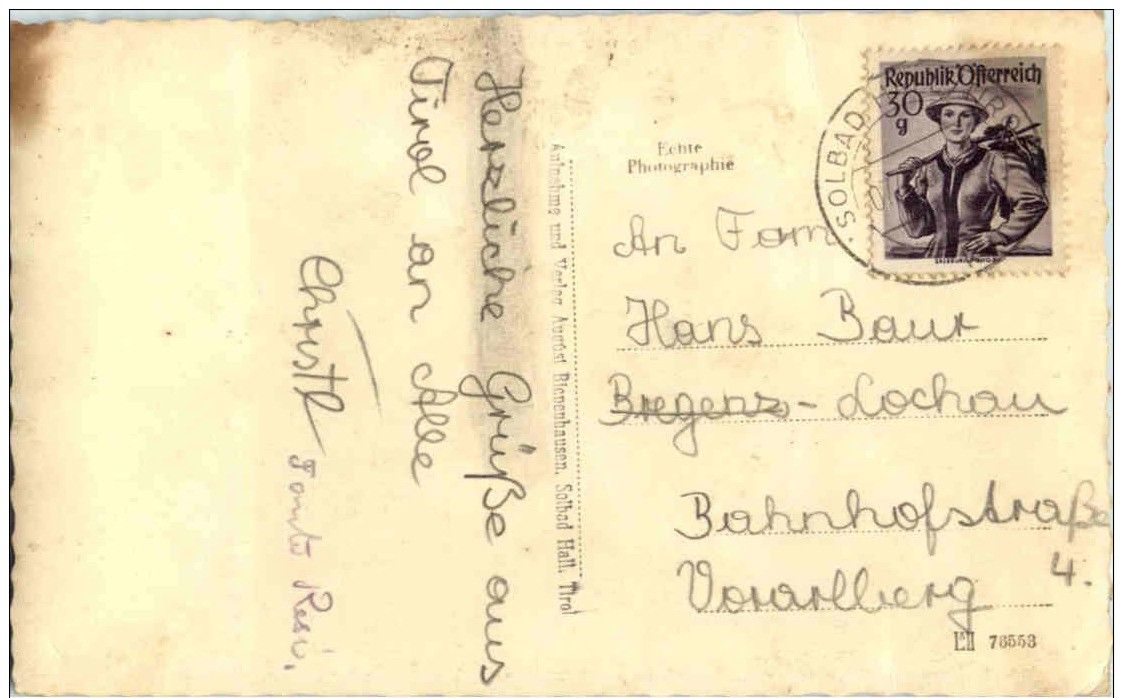 Herzliche Grüße aus
Tirol an Alle
Christl
Tante Resi.
Aufnahme und Verlag August Bienenhausen, Solbad Hall, Tirol
Echte
Photographie
Republik Österreich
30
g
SOLBAD
An Fam
Hans Baur
Bregenz - Lochau
Bahnhofstraße
4.
Vorarlberg
76553